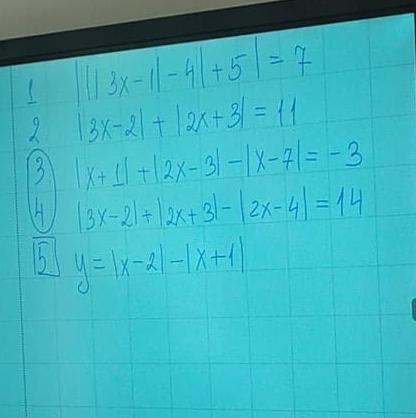 1 |||3x-1|-4|+5|=7
2 |3x-2|+|2x+3|=11
3 |x+1|+|2x-3|-|x-7|=-3
4 |3x-2|+|2x+3|-|2x-4|=14
5 y=|x-2|-|x+1|